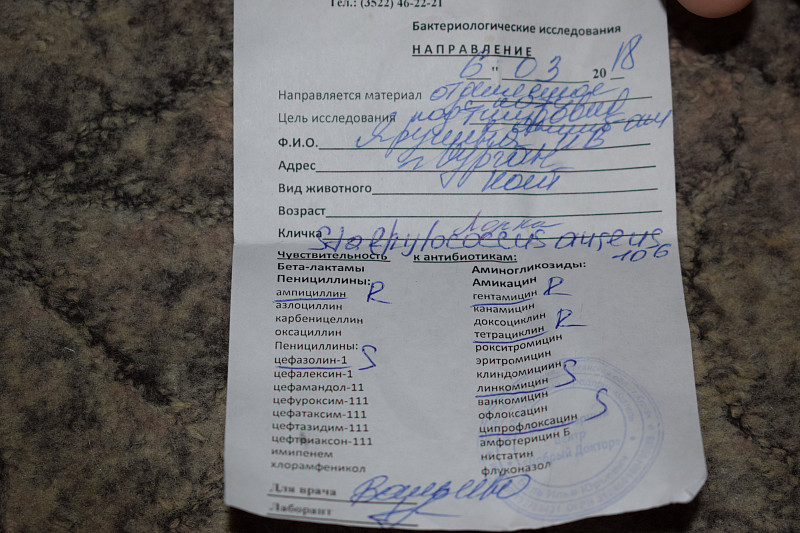 Тел.: (3522) 46-22-21
Бактериологические исследования
НАПРАВЛЕНИЕ
6 " 03 20 18
Направляется материал отделяемое
Цель исследования
Ф.И.О.
Адрес г Курган
Вид животного кот
Возраст
Кличка
Staphylococcus aureus
10 6
Чувствительность к антибиотикам:
Бета-лактамы
Пенициллины:
ампициллин R
азлоциллин
карбенецеллин
оксациллин
Пенициллины:
цефазолин-1 S
цефалексин-1
цефамандол-11
цефуроксим-111
цефатаксим-111
цефтазидим-111
цефтриаксон-111
имипенем
хлорамфеникол
Аминогликозиды:
Амикацин
гентамицин R
канамицин
доксоциклин
тетрациклин R
рокситромицин
эритромицин
клиндомициин
линкомицин S
ванкомицин
офлоксацин
ципрофлоксацин S
амфотерицин Б
нистатин
флуконазол
Для врача
Лаборант